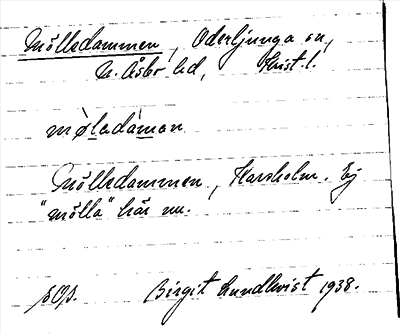 Mölledammen, Oderljunga sn,
N. Åsbo hd, Krist. l.
mø̀ledáman
Mölledammen, Havsholm. Ej
"mölla" här nu.
sOs. Birgit Lundkvist 1938.